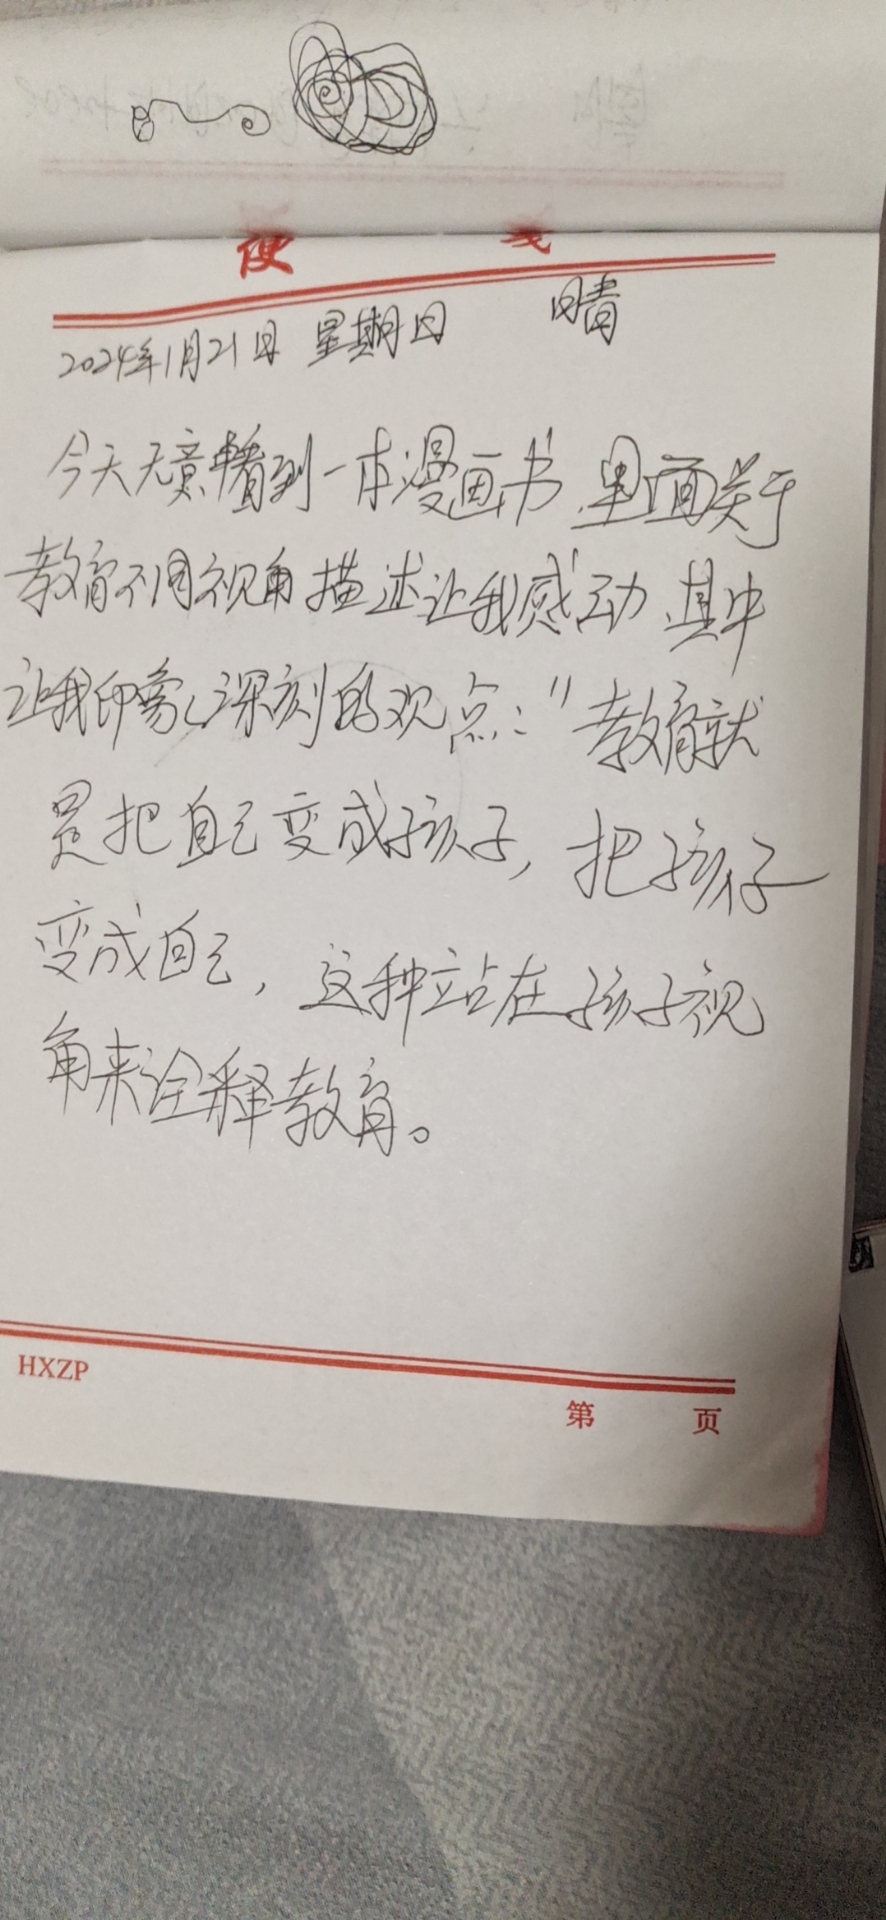 便 笺
2024年1月21日 星期日 晴
今天无意看到一本漫画书,里面关于
教育不同视角描述让我感动,其中
让我印象深刻的观点:"教育就
是把自己变成孩子,把孩子
变成自己,这种站在孩子视
角来诠释教育。
HXZP
第 页